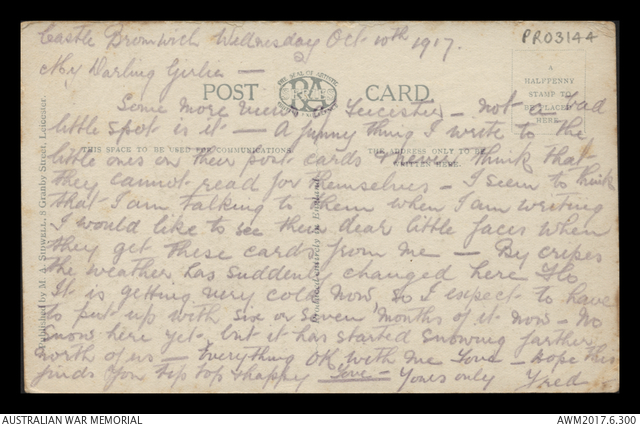 Castle Bromwich Wednesday Oct 10th 1917.
PRO3144
2
My Darling Girlie —
THE SEAL OF ARTISTIC
POST RA CARD
A HALFPENNY STAMP TO BE PLACED HERE.
Some more views of Leicester — not a bad
little spot is it — A funny thing I write to the
THIS SPACE TO BE USED FOR COMMUNICATIONS.
THE ADDRESS ONLY TO BE WRITTEN HERE.
little ones on their post cards & never think that
they cannot read for themselves — I seem to think
that I am talking to them when I am writing
I would like to see their dear little faces when
they get these cards from me — By cripes
the weather has suddenly changed here Flo
It is getting very cold now, so I expect to have
to put up with six or seven months of it now — No
snow here yet, but it has started snowing farther
north of us — Everything OK with me Love — hope this
finds you tip top & happy Love — Yours only Fred
Published by M. A. Stowell, 8 Granby Street, Leicester.
AUSTRALIAN WAR MEMORIAL
AWM2017.6.300